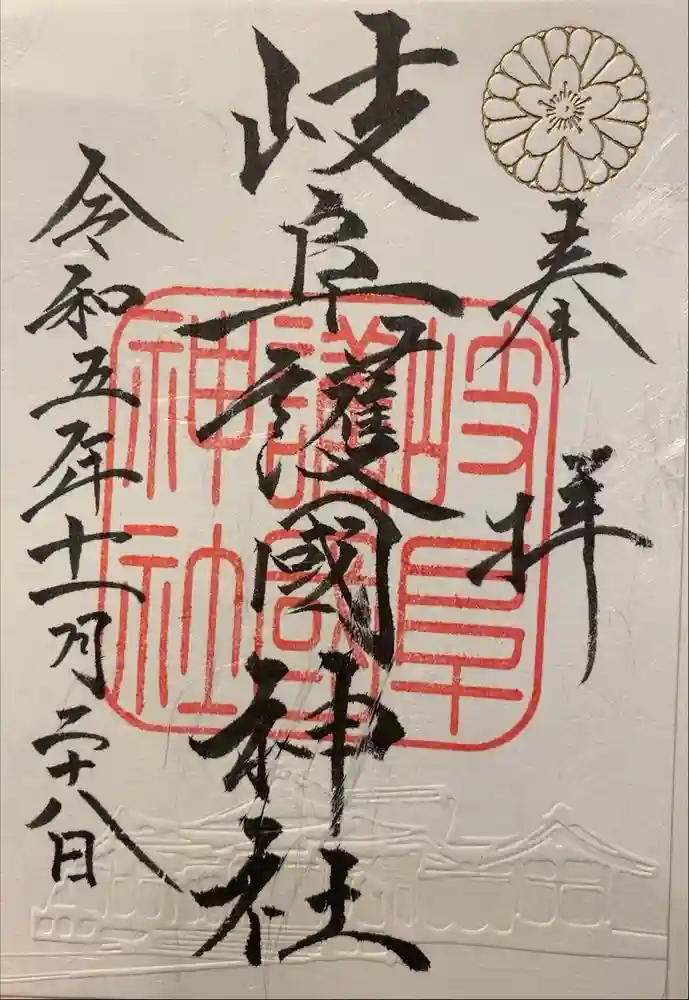 奉拝
岐阜護國神社
岐阜
護國
神社
令和五年十一月二十八日